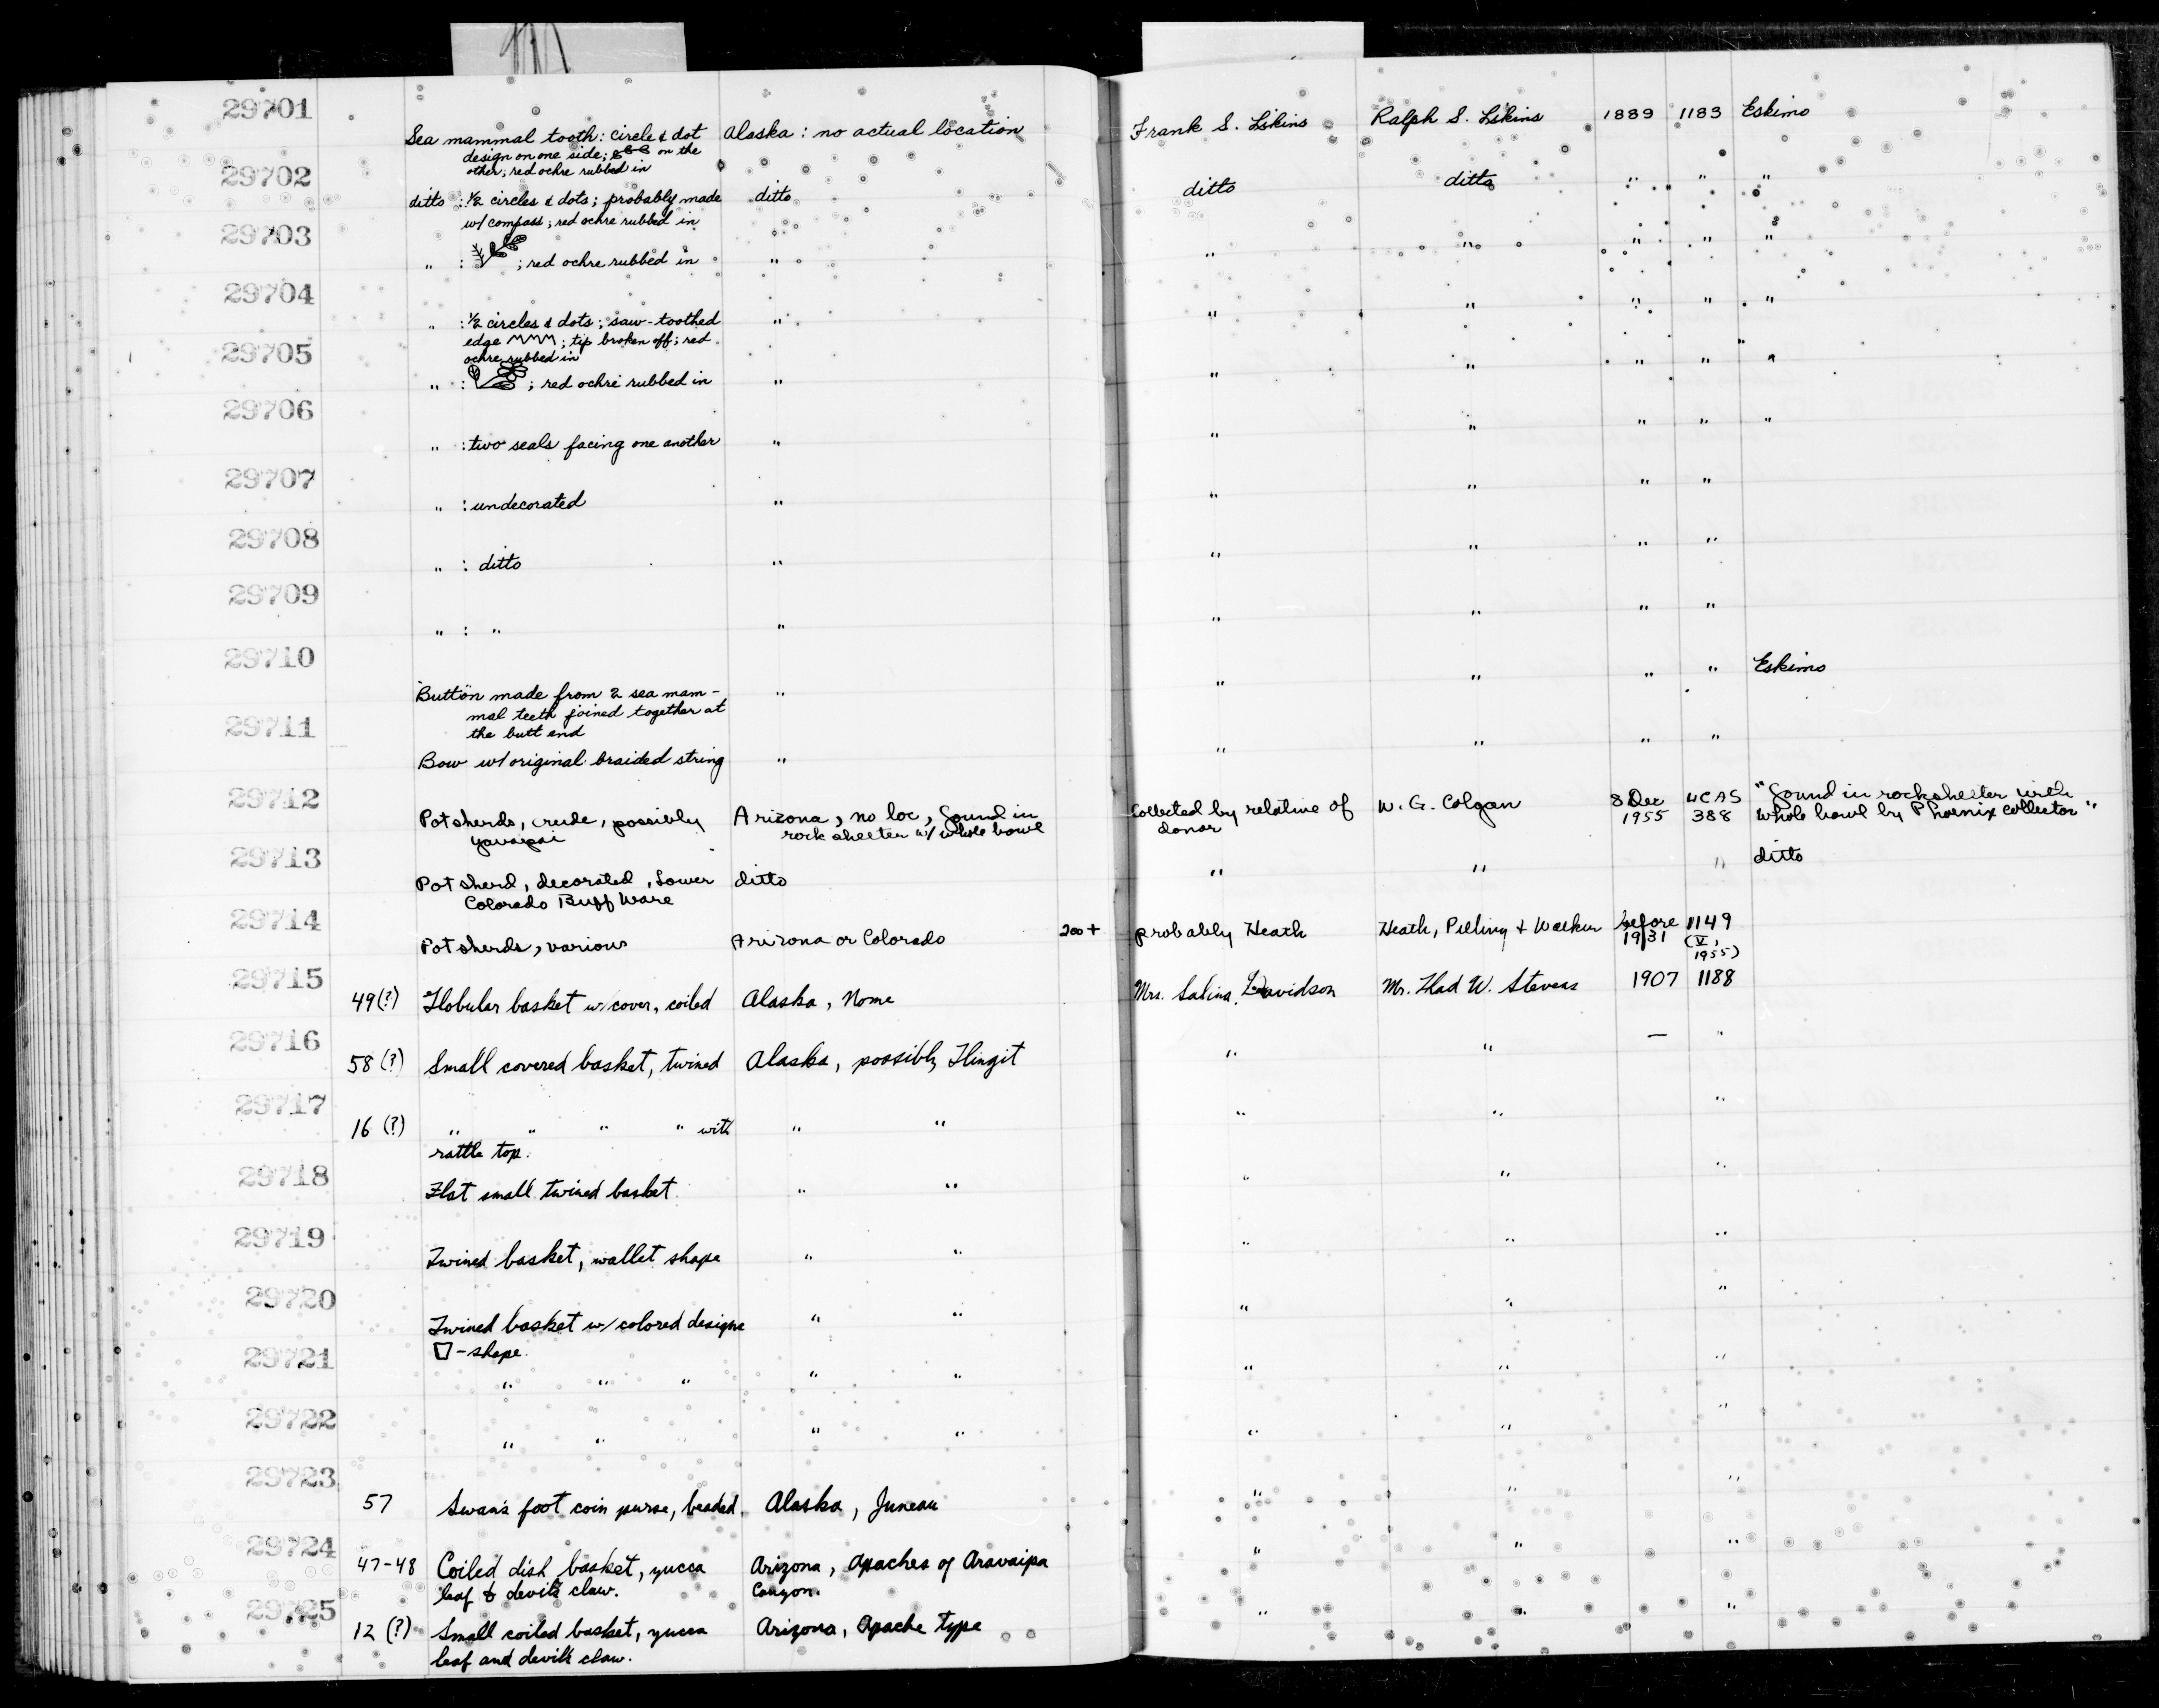 29701
Sea mammal tooth: circle & dot Alaska: no actual location Frank S. Likins Ralph S. Likins 1889 1183 Eskimo
design on one side; on the
other; red ochre rubbed in
29702
ditto : ½ circles & dots; probably made ditto ditto ditto " " "
w/ compass; red ochre rubbed in
29703
" : ; red ochre rubbed in " " " " " "
29704
" : ½ circles & dots; saw-toothed " " " " " "
edge ; tip broken off; red
ochre rubbed in
29705
" : ; red ochre rubbed in " " " " " "
29706
" : two seals facing one another " " " " " "
29707
" : undecorated " " " " "
29708
" : ditto " " " " "
29709
" : " " " " " "
29710
"Button" made from 2 sea mam- " " " " " Eskimo
mal teeth joined together at
the butt end
29711
Bow w/ original braided string " " " " "
29712
Potsherds, crude, possibly Arizona, no loc, found in Collected by relative of W. G. Colgan 8 Dec UCAS "found in rockshelter with
Yavapai rock shelter w/ whole bowl donor 1955 388 whole bowl by Phoenix collector"
29713
Potsherd, decorated, Lower ditto " " " ditto
Colorado Buff Ware
29714
Potsherds, various Arizona or Colorado 200+ probably Heath Heath, Pilling & Walker before 1149
1931 (V, 1955)
29715
49(?) Globular basket w/ cover, coiled Alaska, Nome Mrs. Salina Davidson Mr. Thad W. Stevens 1907 1188
29716
58(?) Small covered basket, twined Alaska, possibly Tlingit " " — "
29717
16 (?) " " " " with " " " " "
rattle top.
29718
Flat small twined basket " " " " "
29719
Twined basket, wallet shape " " " " "
29720
Twined basket w/ colored designs " " " " "
-shape.
29721
" " " " " " " "
29722
" " " " " " "
29723
57 Swan's foot coin purse, beaded. Alaska, Juneau " " "
29724
47-48 Coiled dish basket, yucca Arizona, Apaches of Aravaipa " " "
leaf & devil's claw. Canyon.
29725
12 (?) Small coiled basket, yucca Arizona, Apache type " " "
leaf and devil's claw.